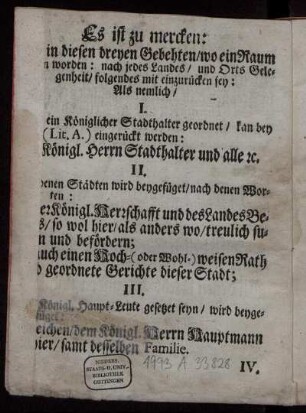 Es ist zu mercken:
in diesen dreyen Gebehten/wo ein Raum
n worden: nach jedes Landes/ und Orts Gele-
genheit/ folgendes mit einzurücken sey:
Als nemlich/
I.
ein Königlicher Stadthalter geordnet/ kan bey
(Lit. A.) eingerückt werden:
Königl. Herrn Stadthalter und alle ꝛc.
II.
enen Städten wird beygefüget/nach denen Wor-
ten:
er Königl. Herrschafft und des Landes Be-
s/ so wol hier/ als anders wo/ treulich su-
n und befördern;
auch einen Hoch-(oder Wohl-) weisen Rath
d geordnete Gerichte dieser Stadt;
III.
Königl. Haupt-Leute gesetzet seyn/ wird beyge-
füget:
eichen/dem Königl. Herrn Hauptmann
hier/ samt desselben Familie.
IV.
NIEDERS.
STAATS- U. UNIV.-
BIBLIOTHEK
GÖTTINGEN
1993 A 33828